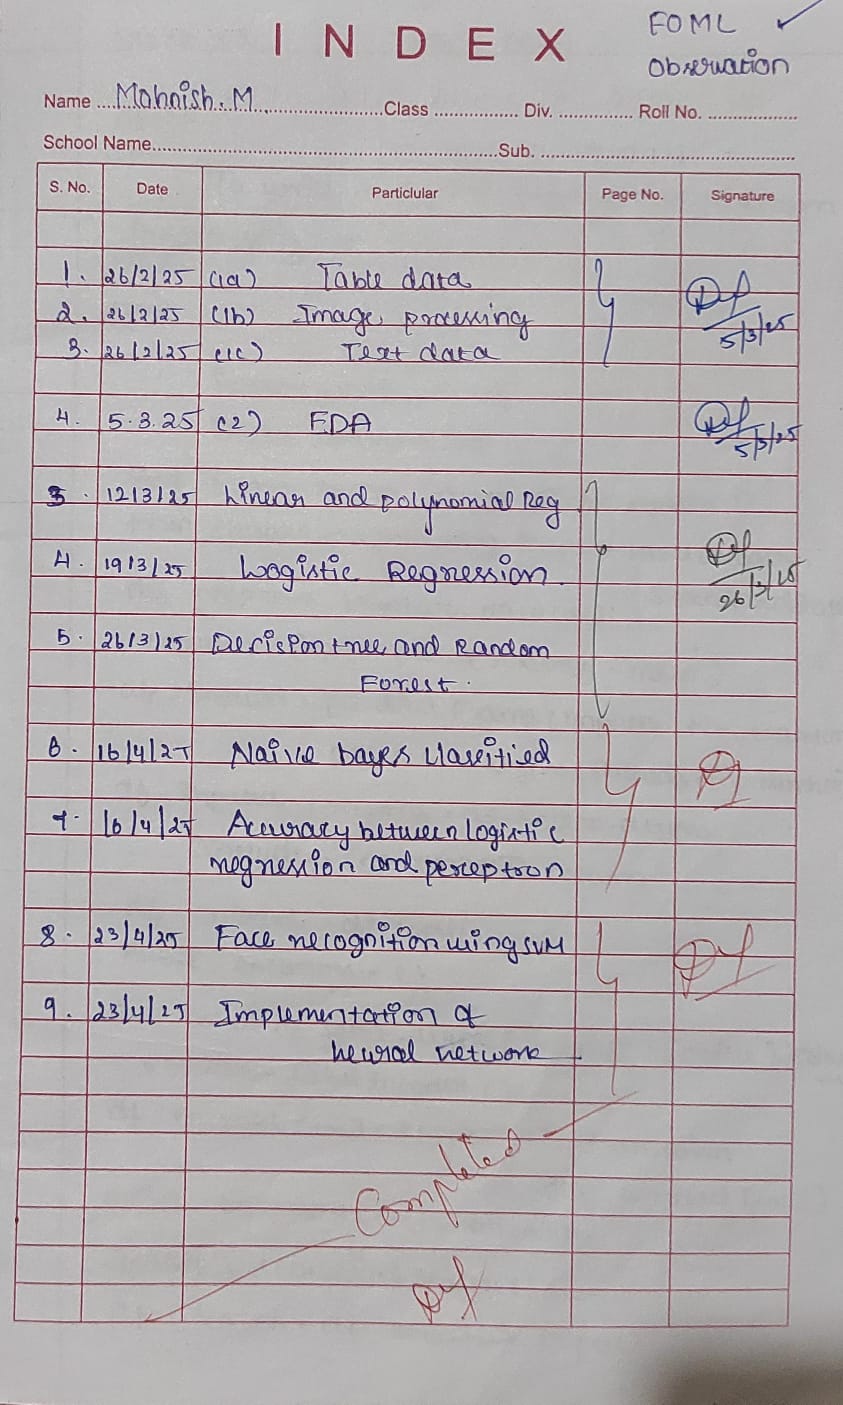 FOML ✓
INDEX
Observation
Name ....Mohnish. M..............................Class ................. Div. ............... Roll No. ..................
School Name......................................................................Sub. ....................................................
S. No. Date Particlular Page No. Signature
1. 26/2/25 (1a) Table data
2. 26/2/25 (1b) Image processing
5/3/25
3. 26/2/25 (1c) Text data
4. 5.3.25 (2) EDA
5/3/25
3. 12/3/25 Linear and polynomial Reg
4. 19/3/25 Logistic Regression.
26/3/25
5. 26/3/25 Decision tree and Random
Forest.
6. 16/4/25 Naive bayes classified
7. 16/4/25 Accuracy between logistic
regression and perceptron
8. 23/4/25 Face recognition using SVM
9. 23/4/25 Implementation of
neural network
Completed